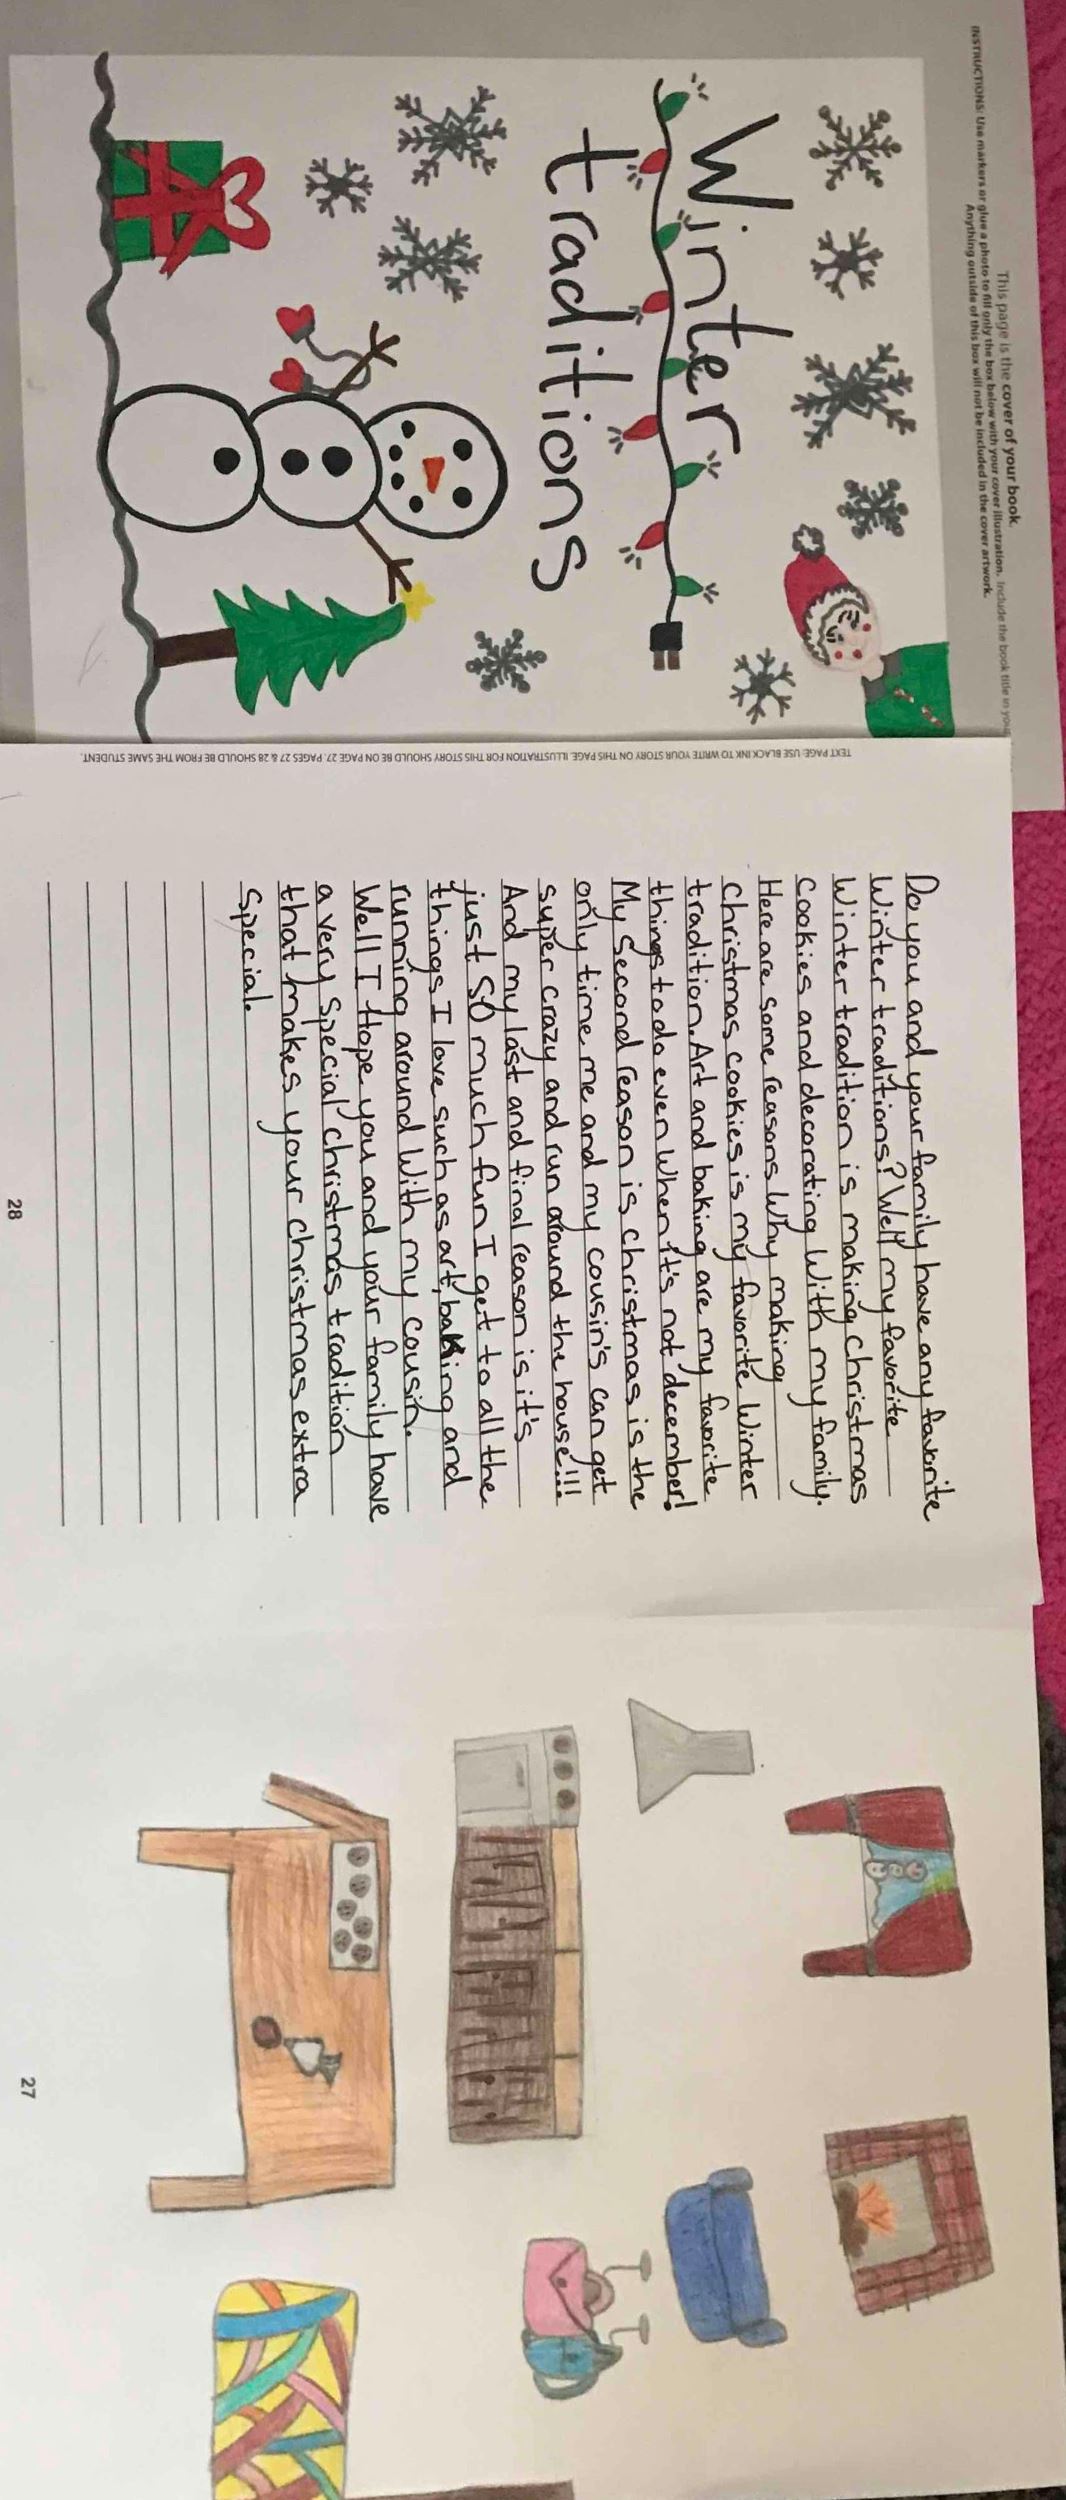 This page is the cover of your book.
INSTRUCTIONS: Use markers or glue a photo to fill only the box below with your cover illustration. Include the book title in your
Anything outside of this box will not be included in the cover artwork.
Winter
traditions
TEXT PAGE: USE BLACK INK TO WRITE YOUR STORY ON THIS PAGE. ILLUSTRATION FOR THIS STORY SHOULD BE ON PAGE 27. PAGES 27 & 28 SHOULD BE FROM THE SAME STUDENT.
Do you and your family have any favorite
Winter traditions? Well my favorite
Winter tradition is making christmas
cookies and decorating With my family.
Here are some reasons Why making
christmas cookies is my favorite Winter
tradition. Art and baking are my favorite
things to do even When it's not december!
My Second reason is christmas is the
only time me and my cousin's can get
super crazy and run around the house!!!
And my last and final reason is it's
just SO much fun I get to all the
things I love such as art, baking and
running around With my cousin.
Well I Hope you and your family have
a very Special christmas tradition
that makes your christmas extra
Special.
28
27